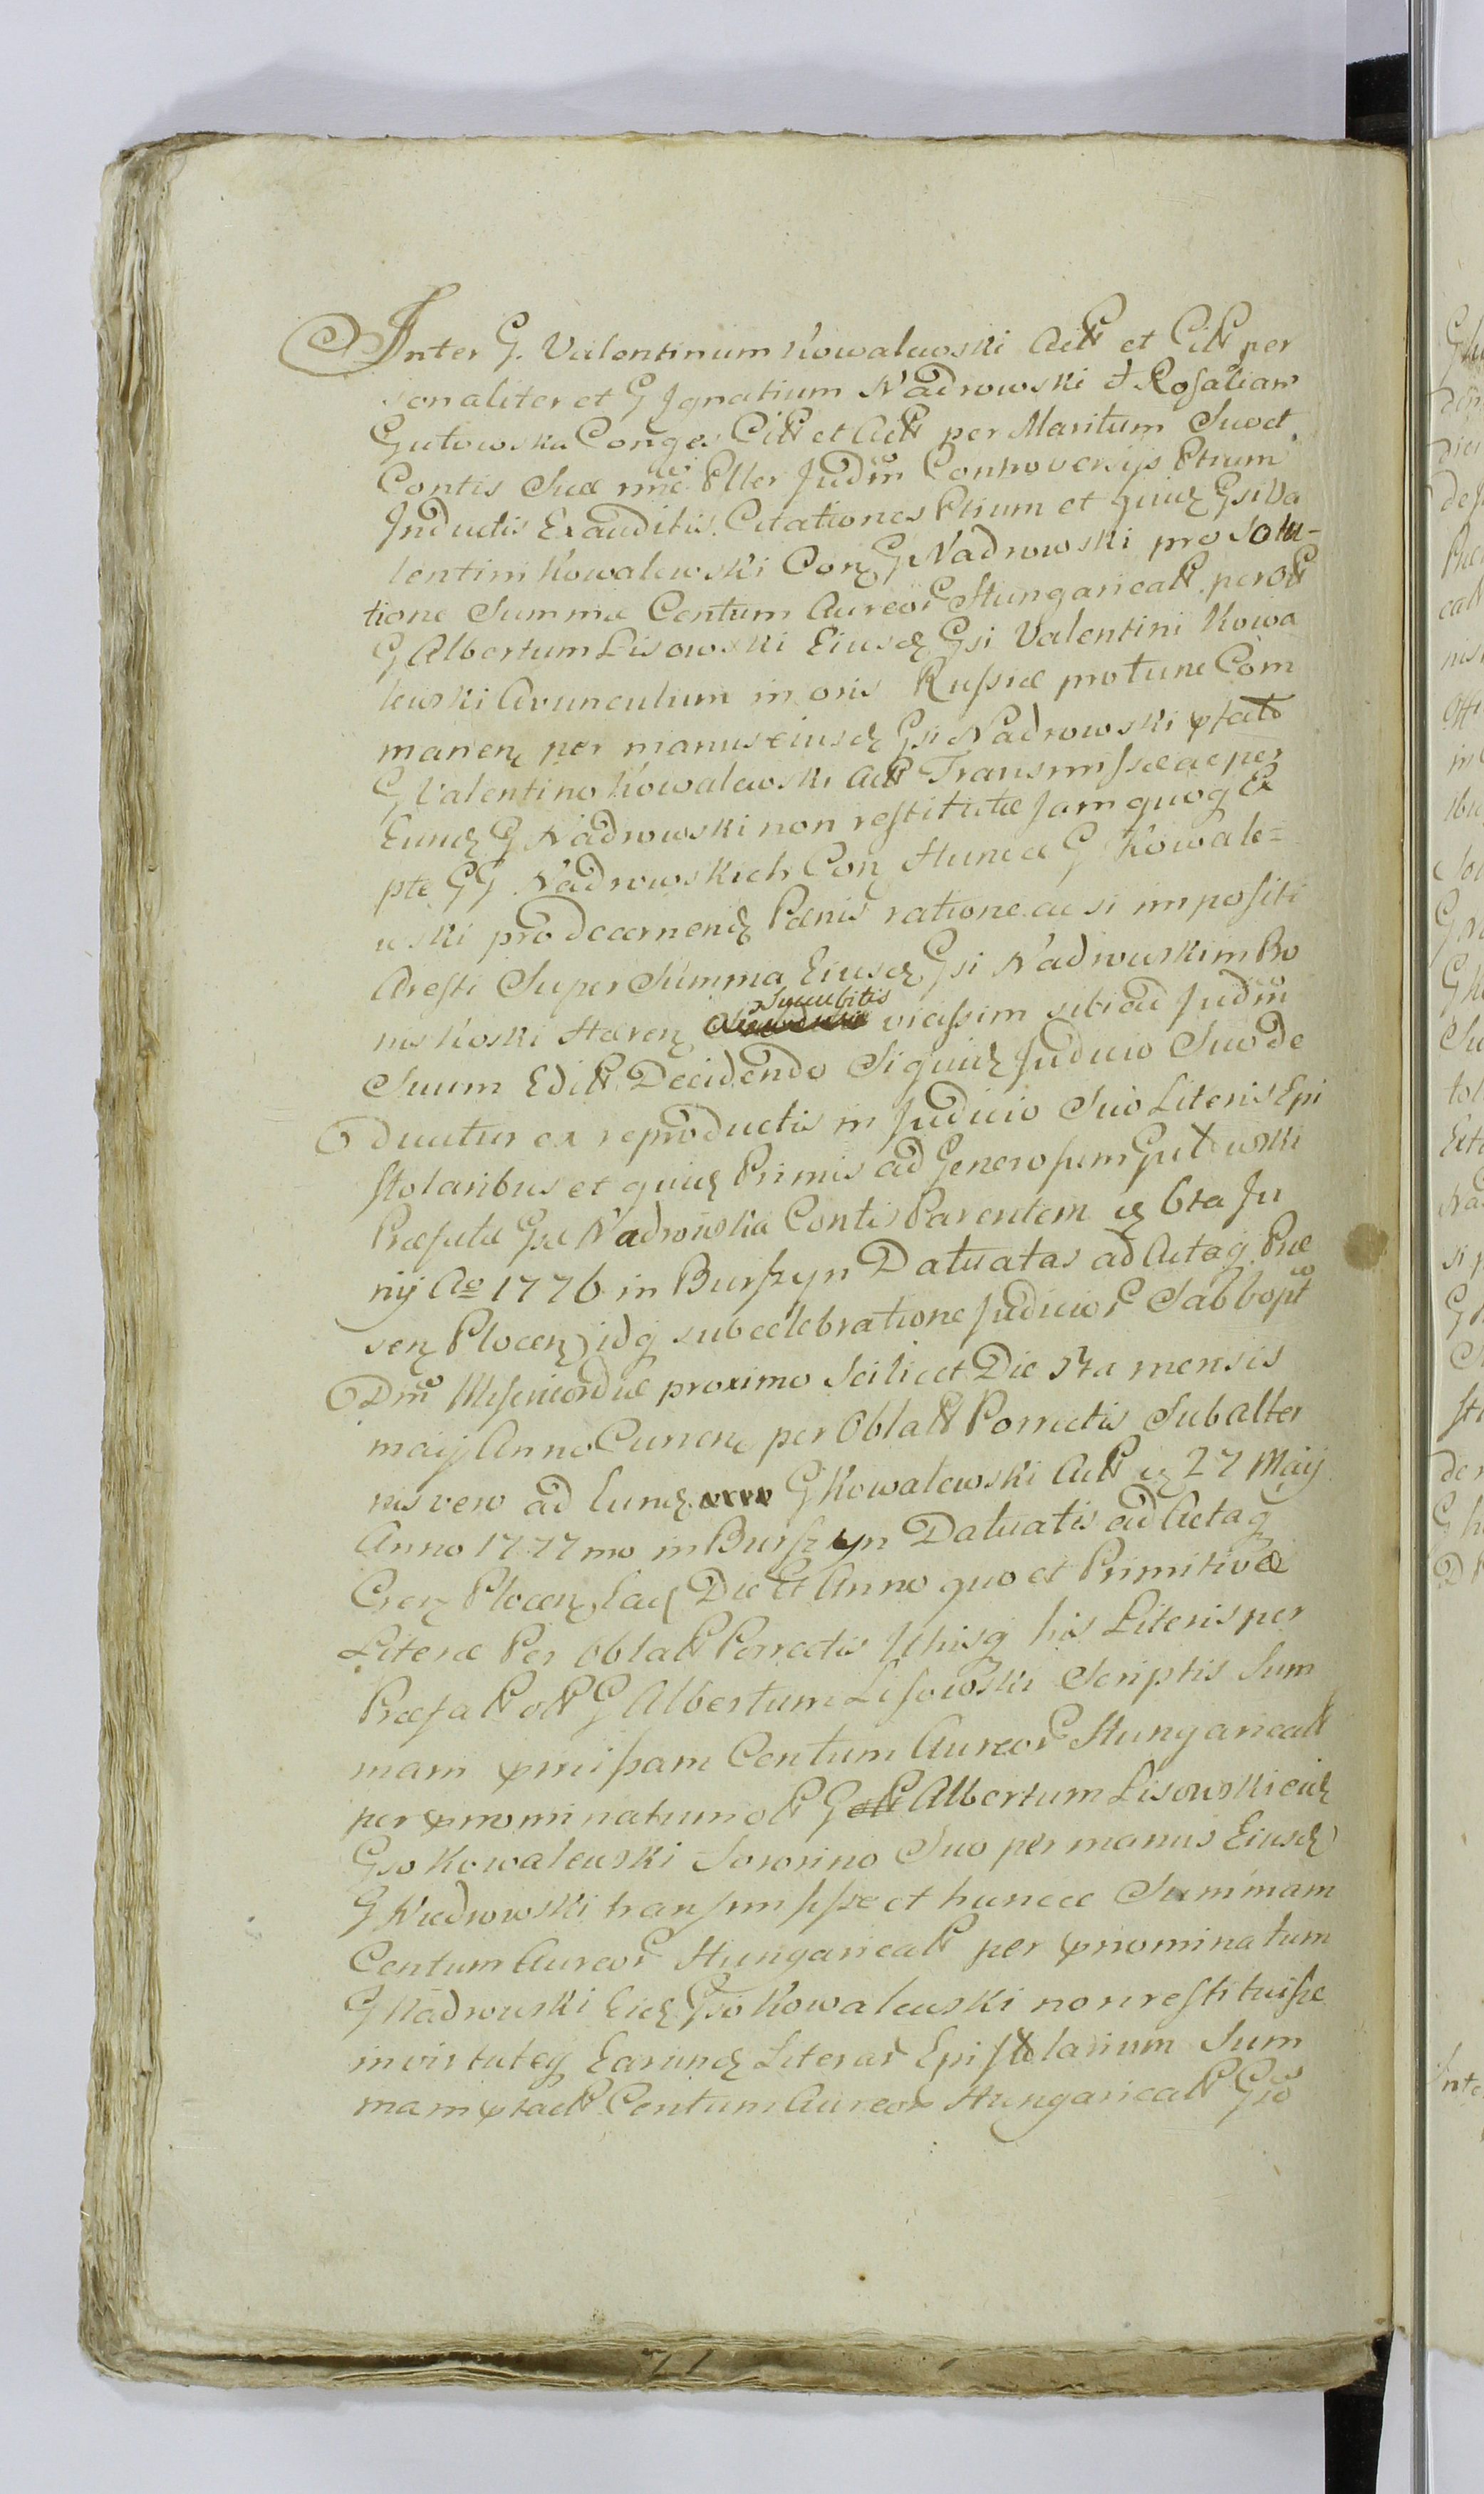 Inter G. Valentinum Kowalewski Actt et Citt per
sonaliter et G Ignatium Nadrowski et Rosaliam
Gutowska Conges Citt et Actt per Maritum Suo et
Contis Suæ nnē Pller Judm Controversijs Ptium
Inductis Exauditis. Citationes Ptium et quidz Gsi Va
lentini Kowalewski Conz G Nadrowski pro Solu-
tione Summæ Centum Aureor Hungaricatt per ott
G Albertum Lisowski Eiusdz Gsi Valentini Kowa
lewski Avunculum in oris Russiæ pro tunc Com
manenz per manus eiusdz Gsi Nadrowski pfato
G Valentino Kowalewski Actt Transmissæ ac per
Eundz G Nadrowski non restitutæ Jam quoq Ex
pte GG Nadrowskich Conz Huncce G Kowale=
wski pro decernendz Pænis ratione ac si impositi
Aresti Super Summa Eiusdz Gsi Nadrowski in Bo
nis Koski Hærenz Succubitis vicissim sibi ad Judm
Suum Editt Decidendo Siquidz Judicio Suo de
ducitur ex reproductis in Judicio Suo Literis Epi
stolaribus et quidz Primis ad Generosum Gutowski
Præfatæ Gsæ Nadrowska Contis Parentem dz 6ta Ju
nij Ao 1776 in Burszyn Datuatas ad Actaq Præ
senz Plocenz idq sub celebratione Judicior Sabbo pt
Dm̄ Misericordiæ proximo Scilicet Die 17a mensis
maij Anno Currenz per Oblatt Porrectis Subalter
nis vero ad Eundz G Kowalewski Actt dz 27 Maij
Anno 1777mo in Burszyn Datuatis ad Actaq
Crenz Plocenz Eadz Die et Anno quo et Primitivæ
Literæ Per Oblatt Porrectis Utrisq his Literis per
Præfatt ott G Albertum Lisowski Scriptis Sum
mam pmissam Centum Aureor Hungaricatt
per pnominatum ott G Albertum Lisowski eidz
Gso Kowalewski Sororino Suo per manus Eiusdz
G Nadrowski transmisisse et huncce Summam
Centum Aureor Hungaricatt per pnominatum
G Nadrowski Eidz Gso Kowalewski non restituisse
in virtuteq Earundz Literar Epistolarium Sum
mam ptactt Centum Aureor Hungaricatt Gso